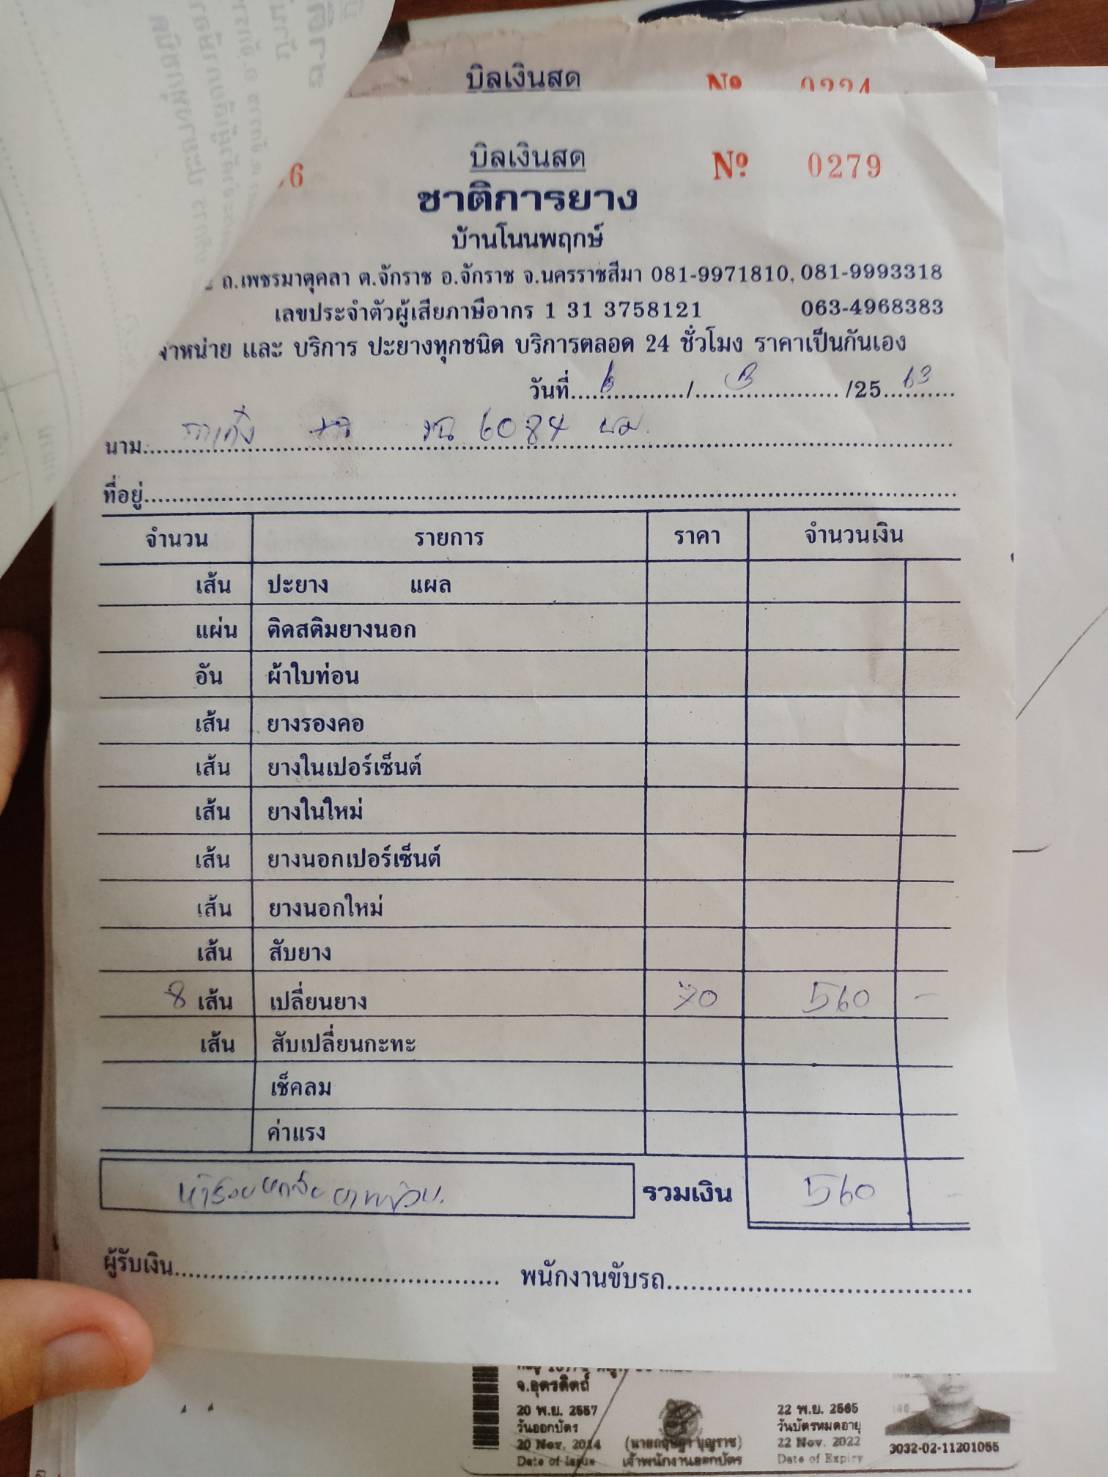 บิลเงินสด Nº 0224
บิลเงินสด Nº 0279
6
ชาติการยาง
บ้านโนนพฤกษ์
ถ.เพชรมาตุคลา ต.จักราช อ.จักราช จ.นครราชสีมา 081-9971810, 081-9993318
เลขประจำตัวผู้เสียภาษีอากร 1 31 3758121 063-4968383
จำหน่าย และ บริการ ปะยางทุกชนิด บริการตลอด 24 ชั่วโมง ราคาเป็นกันเอง
วันที่ 6 / 3 /25 63
นาม 6084 นม.
ที่อยู่
จำนวน รายการ ราคา จำนวนเงิน
เส้น ปะยาง แผล
แผ่น ติดสติมยางนอก
อัน ผ้าใบท่อน
เส้น ยางรองคอ
เส้น ยางในเปอร์เซ็นต์
เส้น ยางในใหม่
เส้น ยางนอกเปอร์เซ็นต์
เส้น ยางนอกใหม่
เส้น สับยาง
8 เส้น เปลี่ยนยาง 70 560 -
เส้น สับเปลี่ยนกะทะ
เช็คลม
ค่าแรง
ห้าร้อยหกสิบบาทถ้วน. รวมเงิน 560 -
ผู้รับเงิน พนักงานขับรถ
จ.อุตรดิตถ์
20 พ.ย. 2557 22 พ.ย. 2565
วันออกบัตร วันบัตรหมดอายุ
20 Nov. 2014 22 Nov. 2022 3032-02-11201055
Date of Issue เจ้าพนักงานออกบัตร Date of Expiry